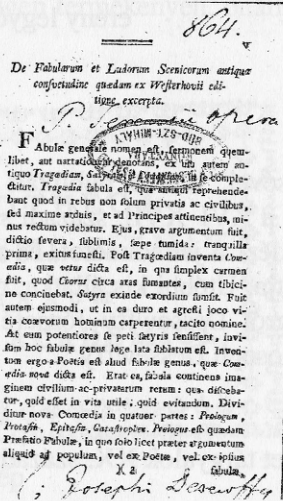 864.
De Fabularum et Ludorum Scenicorum antiqua
consuetudine quædam ex Westerhovii edi-
tione excerpta.
P. opera
FAbulæ generale nomen est, sermonem quem-
libet, aut narrationem denotans, ex usu autem an-
tiquo Tragœdiam, in se comple-
ctitur. Tragœdia fabula est, qua antiqui reprehende-
bant quod in rebus non solum privatis ac civilibus,
sed maxime arduis, et ad Principes attinentibus, mi-
nus rectum videbatur. Ejus, grave argumentum fuit,
dictio severa, sublimis, sæpe tumida: tranquilla
prima, exitus funesti. Post Tragœdiam inventa Com-
œdia, quæ vetus dicta est, in qua simplex carmen
fuit, quod Chorus circa aras fumantes, cum tibici-
ne concinebat. Satyra exinde exordium sumsit. Fuit
autem ejusmodi, ut in ea duro et agresti joco vi-
tia coævorum hominum carperentur, tacito nomine.
At cum potentiores se peti satyris sensissent, invi-
sum hoc fabulæ genus lege lata sublatum est. Inven-
tum ergo a Poëtis est aliud fabulæ genus, quæ Com-
œdia nova dicta est. Erat ea, fabula continens ima-
ginem civilium ac privatarum rerum: qua disceba-
tur, quid esset in vita utile, quid evitandum. Divi-
ditur nova Comœdia in quatuor partes: Prologum,
Protasin, Epitasin, Catastrophen. Prologus est quædam
Præfatio Fabulæ, in quo solo licet præter argumentum
aliquid ad populum, vel ex Poëtæ, vel ex ipsius
X 2 fabulæ
Josephi Dessewffy